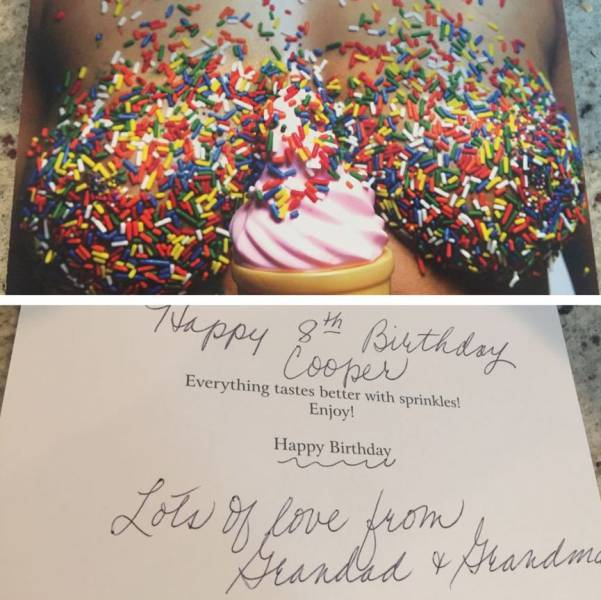 Happy 8th Birthday
Cooper
Everything tastes better with sprinkles!
Enjoy!
Happy Birthday
Lots of love from
Grandad & Grandma